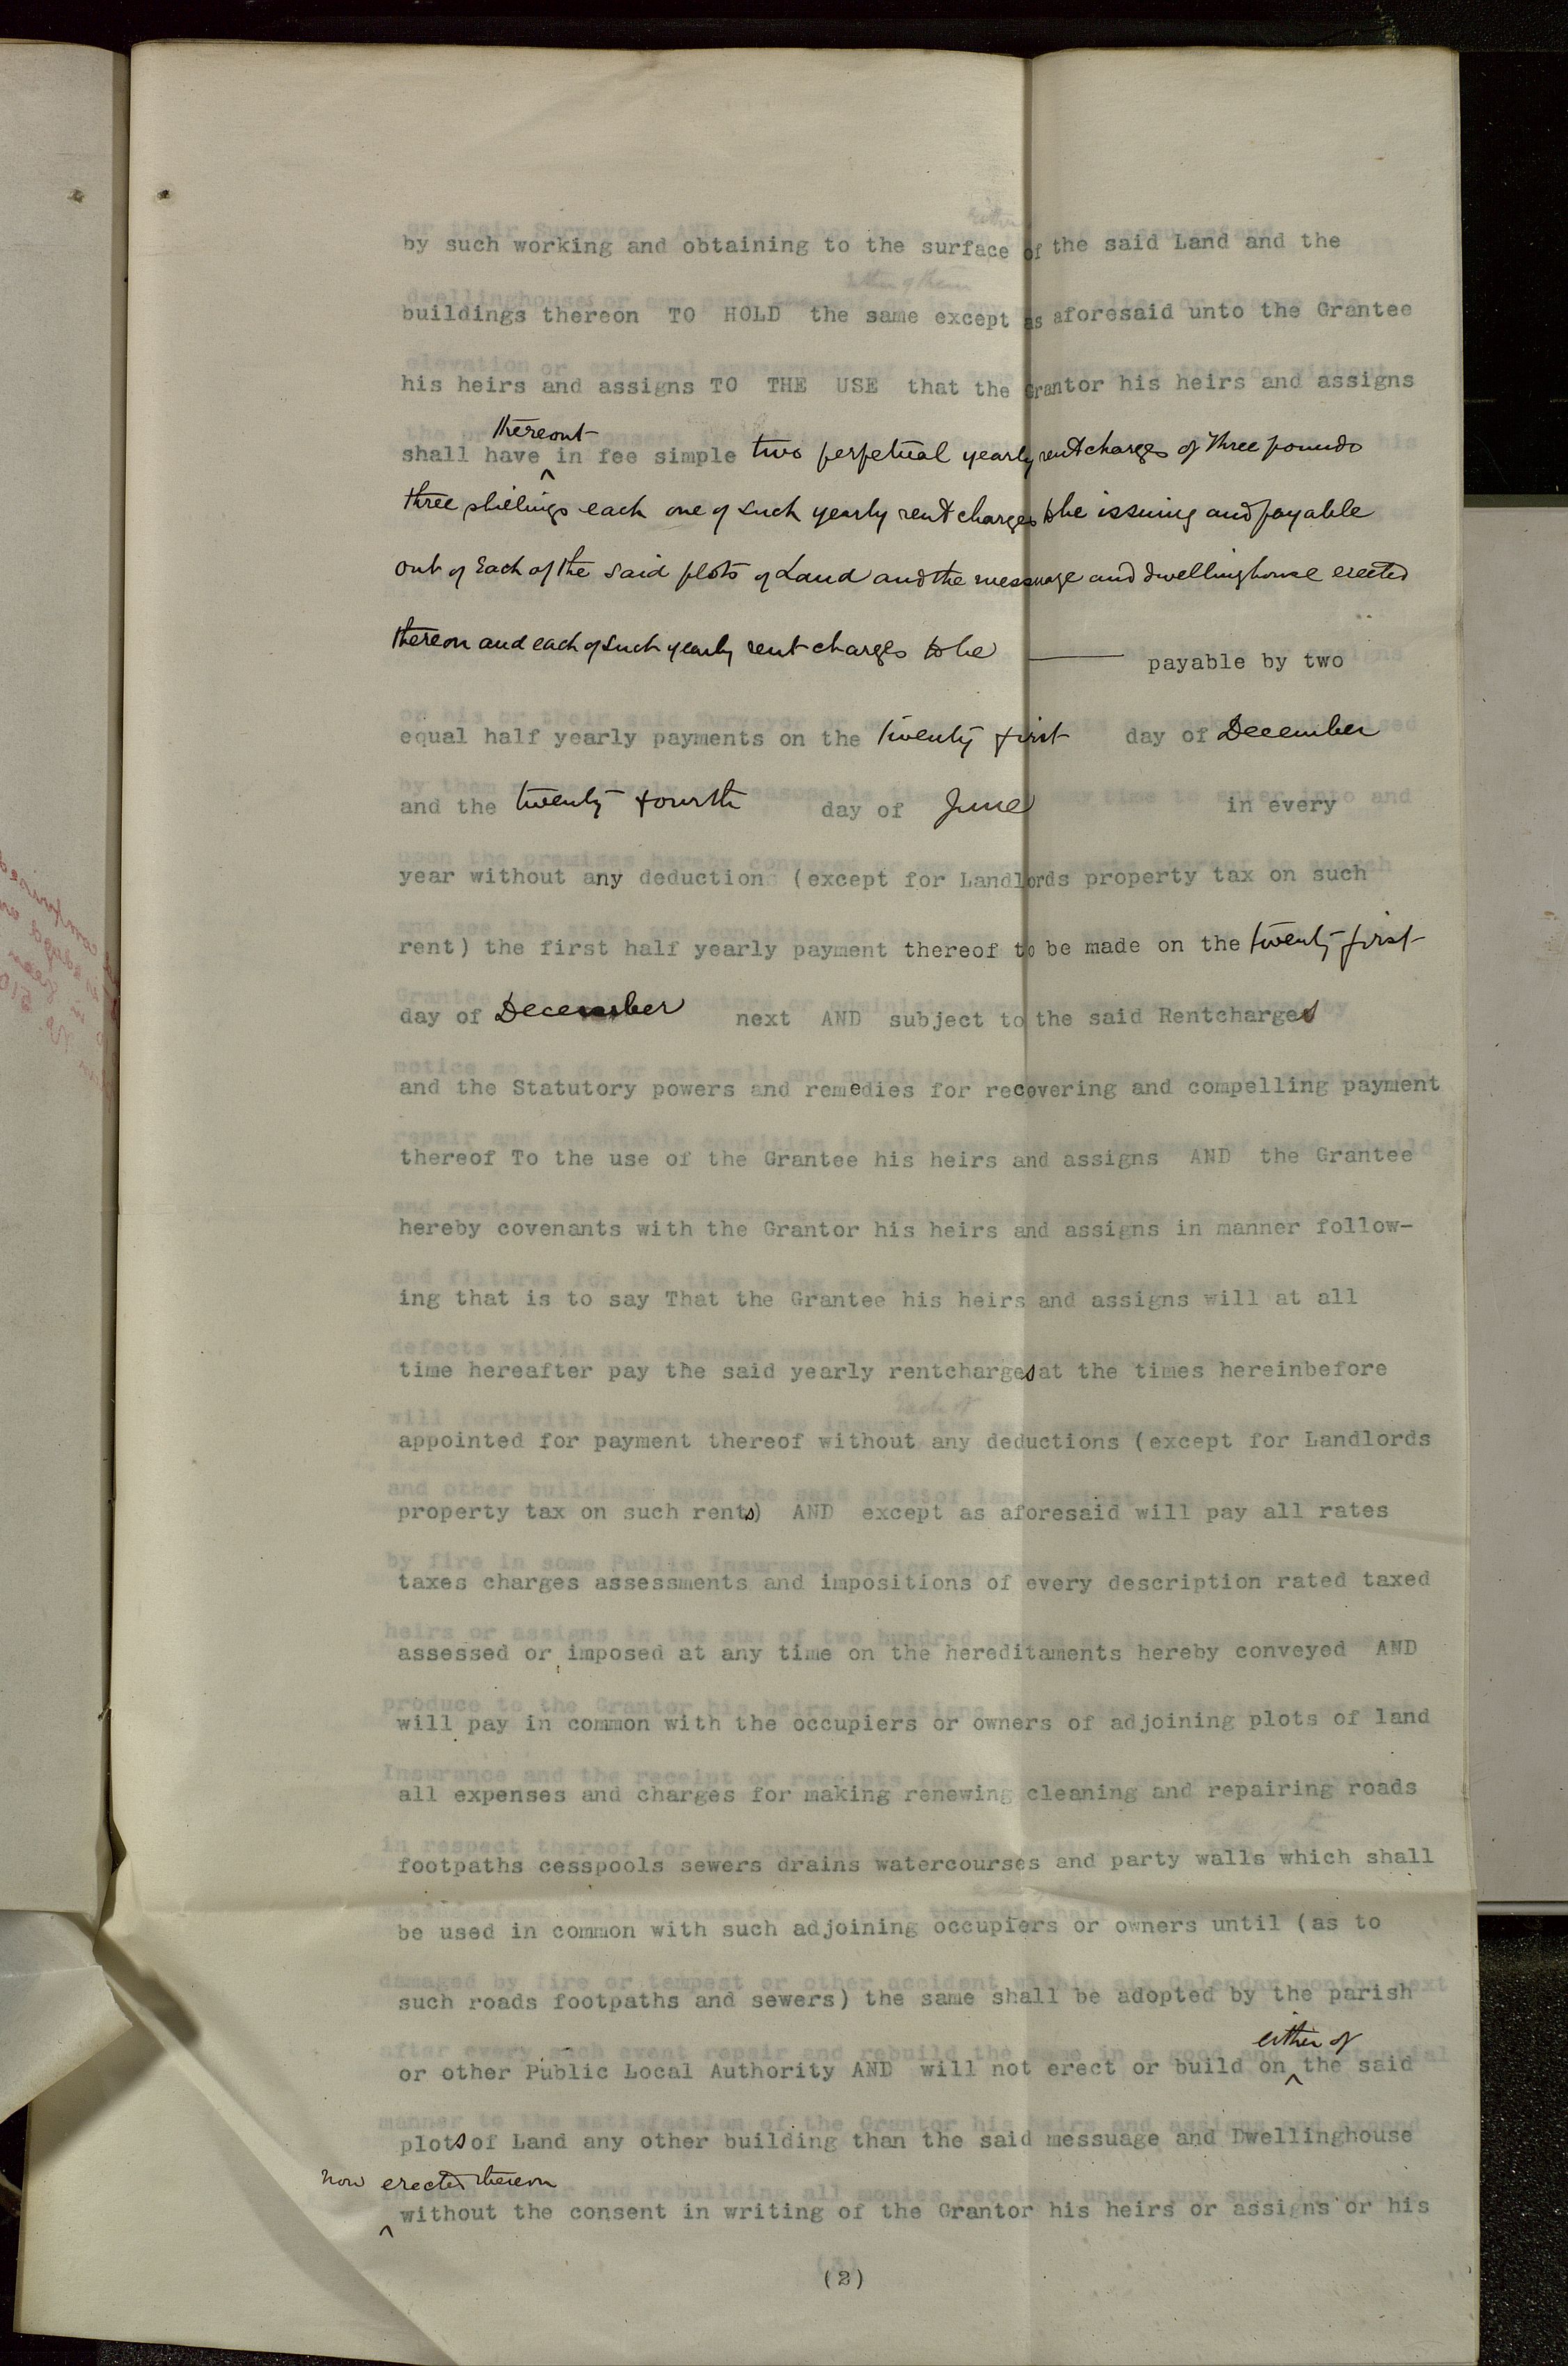 by such working and obtaining to the surface of the said Land and the
buildings thereon TO HOLD the same except as aforesaid unto the Grantee
his heirs and assigns TO THE USE that the Grantor his heirs and assigns
thereout
shall have ^ in fee simple two perpetual yearly rentcharges of three pounds
three shillings each one of such yearly rent charges to be issuing and payable
out of Each of the said plots of Land and the messuage and dwellinghouse erected
thereon and each of such yearly rent charges to be payable by two
equal half yearly payments on the twenty first day of December
and the twenty fourth day of June in every
year without any deductions (except for Landlords property tax on such
rent) the first half yearly payment thereof to be made on the twenty first
day of December next AND subject to the said Rentcharges
and the Statutory powers and remedies for recovering and compelling payment
thereof To the use of the Grantee his heirs and assigns AND the Grantee
hereby covenants with the Grantor his heirs and assigns in manner follow-
ing that is to say That the Grantee his heirs and assigns will at all
time hereafter pay the said yearly rentcharges at the times hereinbefore
appointed for payment thereof without any deductions (except for Landlords
property tax on such rents) AND except as aforesaid will pay all rates
taxes charges assessments and impositions of every description rated taxed
assessed or imposed at any time on the hereditaments hereby conveyed AND
will pay in common with the occupiers or owners of adjoining plots of land
all expenses and charges for making renewing cleaning and repairing roads
footpaths cesspools sewers drains watercourses and party walls which shall
be used in common with such adjoining occupiers or owners until (as to
such roads footpaths and sewers) the same shall be adopted by the parish
either of
or other Public Local Authority AND will not erect or build on ^ the said
plots of Land any other building than the said messuage and Dwellinghouse
now erected thereon
^ without the consent in writing of the Grantor his heirs or assigns or his
(2)